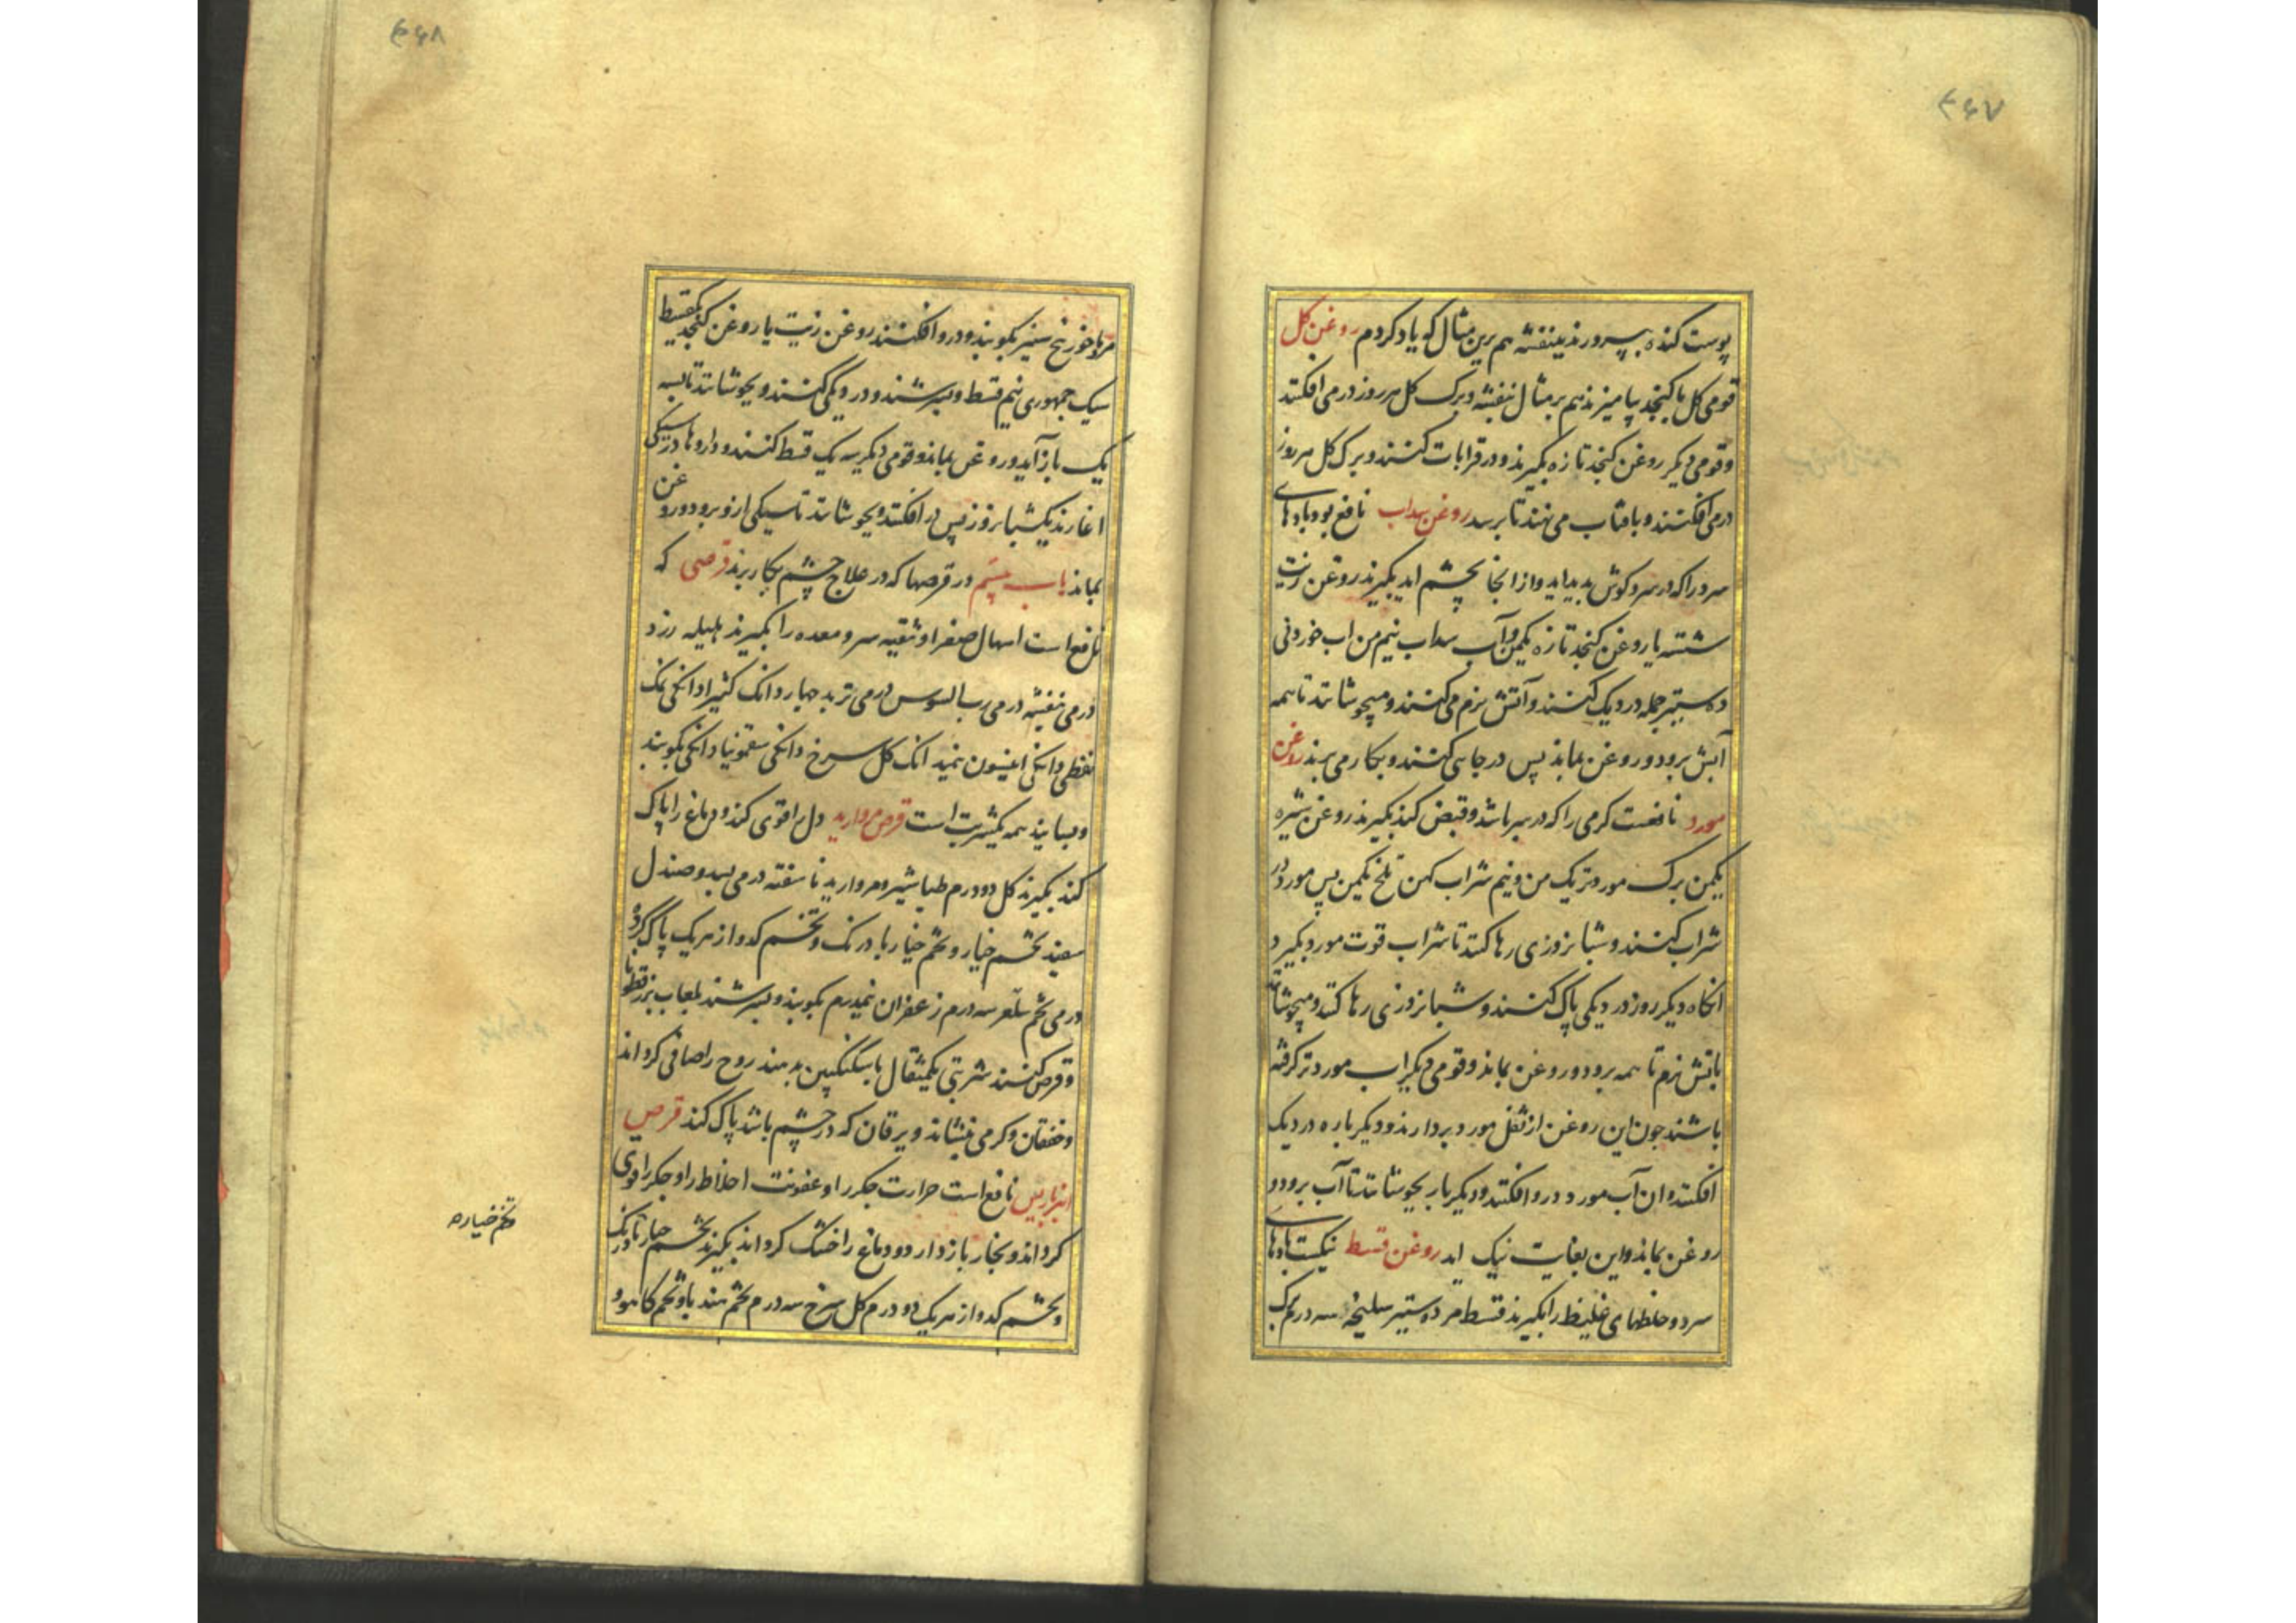 ۴۶۷
پوست کنده بپرورند ببنفشه هم برین مثال که یاد کردم روغن کل
قومی کل با کنجد بیامیزند هم بر مثال بنفشه و برک کل هر روز در می افکنند
و قومی دیکر روغن کنجد تازه بکیرند و در قرابات کنند و برک کل هر روز
در می افکنند و بافتاب می نهند تا برسد روغن سداب نافع بود بادهای
سرد را که در سر و کوش بدید اید و از انجا بچشم اید بکیرند روغن زیت
شسته یا روغن کنجد تازه یکمن و آب سداب نیم من اب خوردنی
ده ستیر جمله در دیک کنند و آتش نرم می کنند و میجوشانند تا همه
آبش برود و روغن بماند پس در جایی کنند و بکار می برند روغن
مورد نافعست کرمی را که در سر باشد و قبض کند بکیرند روغن شیره
یکمن برک مورد تر یک من و نیم شراب کهن تلخ یکمن پس مورد در
شراب کنند و شبانروزی رها کنند تا شراب قوت مورد بکیرد
انکاه دیکر روز در دیکی پاک کنند و شبانروزی رها کنند و میجوشانند
باتش نرم تا همه برود و روغن بماند و قومی دیکر اب مورد تر کرفته
باشند جون این روغن از ثفل مورد بردارند و دیکر باره در دیک
افکنند و ان آب مورد درو افکنند و دیکر بار بجوشانند تا آب برود و
روغن بماند و این بغایت نیک اید روغن قسط نیکست بادهای
سرد و خلطهای غلیظ را بکیرند قسط مر ده ستیر سلیخه سه درم برک
۴۶۸
مرماخوز پنج ستیر بکوبند و درو افکنند روغن زیت یا روغن کنجد یکقسط
سیک جمهوری نیم قسط و بسرشند و در دیکی کنند و بجوشانند تا بسه
یک باز آید و روغن بماند و قومی دیکر سه یک قسط کنند و داروها در سیکی
اغارند یکشبانروز پس در افکنند و بجوشانند تا سیکی ازو برود و روغن
بماند باب بیستم در قرصها که در علاج چشم بکار برند قرصی که
نافع است اسهال صفرا و تنقیه سر و معده را بکیرند هلیله زرد
درمی بنفشه درمی رب السوس درمی تربد جهار دانک کثیرا دانکی نمک
نفطی دانکی انیسون نیمدانک کل سرخ دانکی سقمونیا دانکی بکوبند
و بسایند همه یکشربت است قرص مروارید دل را قوی کند و دماغ را پاک
کند بکیرند کل دو درم طباشیر و مروارید ناسفته درمی بسد و صندل
سفید تخم خیار و تخم خیار بادرنک و تخم کدو از هریک پاک کرده
درمی تخم سه درم زعفران نیمدرم بکوبند و بسرشند بلعاب بزرقطونا
و قرص کنند شربتی یکمثقال با سکنکبین بدهند روح را صافی کرداند
و خفقان و کرمی بنشاند و یرقان که در چشم باشد پاک کند قرص
انبرباریس نافع است حرارت جکر را و عفونت اخلاط را و جکر را قوی
کرداند و بخار باز دارد و دماغ را خشک کرداند بکیرند تخم خیار بادرنک
و تخم کدو از هریک دو درم کل سرخ سه درم تخم هندبا و تخم کاهو و
تخم خیاره